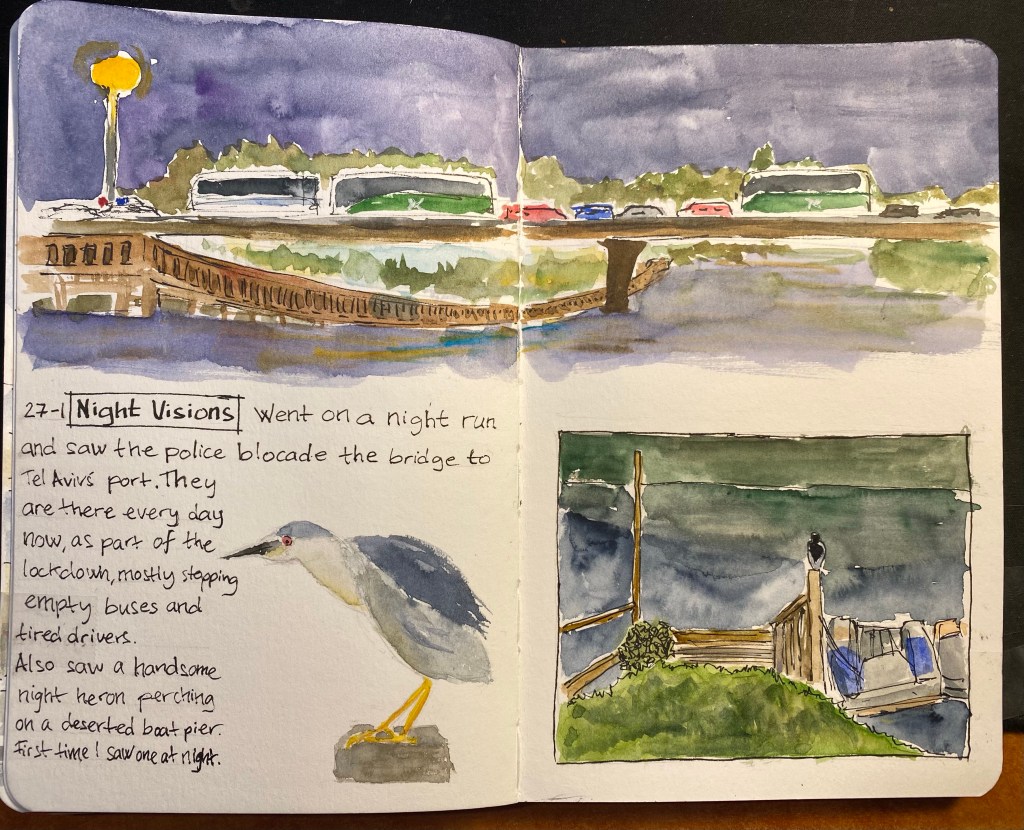 27-1 Night Visions Went on a night run
and saw the police blocade the bridge to
Tel Aviv's port. They
are there every day
now, as part of the
lockdown, mostly stopping
empty buses and
tired drivers.
Also saw a handsome
night heron perching
on a deserted boat pier.
First time I saw one at night.